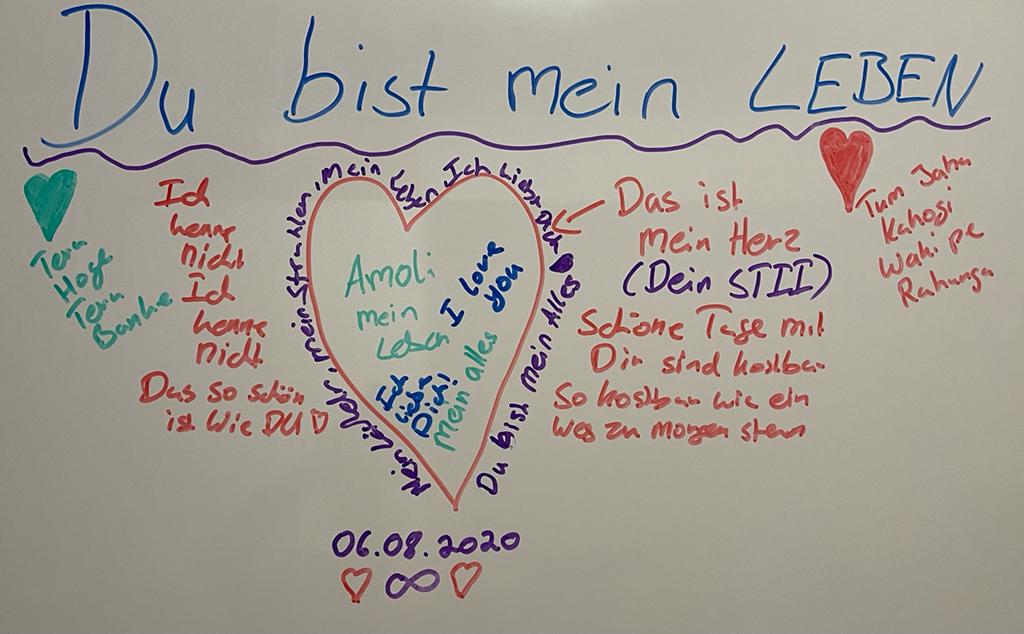 Du bist mein LEBEN
Tera
Hoge
Tera
Banke
Ich
kenne
nicht
Ich
kenne
nicht
Das so schön
ist wie DU
Mein Lächeln, mein Strahlen, Mein Leben Ich Liebe Dich
Du bist mein Alles
Amoli
mein
Leben
I love
you
Ich
liebe
Dich!
mein alles
Das ist
mein Herz
(Dein STIII)
Schöne Tage mit
Dir sind kostbar
So kostbar wie ein
Weg zu morgen stern
Tum Jaha
Kahogi
Wahi pe
Rahunga
06.08.2020
∞